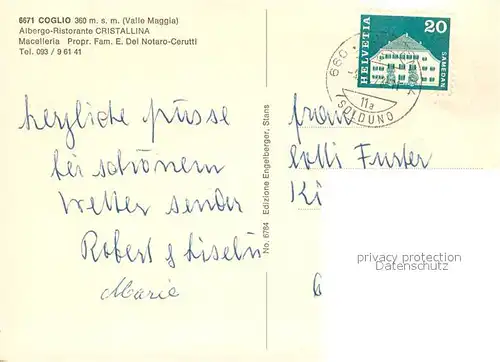 6671 COGLIO 360 m. s. m. (Valle Maggia)
Albergo-Ristorante CRISTALLINA
Macelleria Propr. Fam. E. Del Notaro-Cerutti
Tel. 093 / 9 61 41
herzliche Grüsse
bei schönem
Wetter senden
Robert & Liselis
Marie
No. 6784 Edizione Engelberger, Stans
HELVETIA
20
SAMEDAN
660
11a
SOLDUNO
Frau
Lotti Furter
privacy protection
Datenschutz